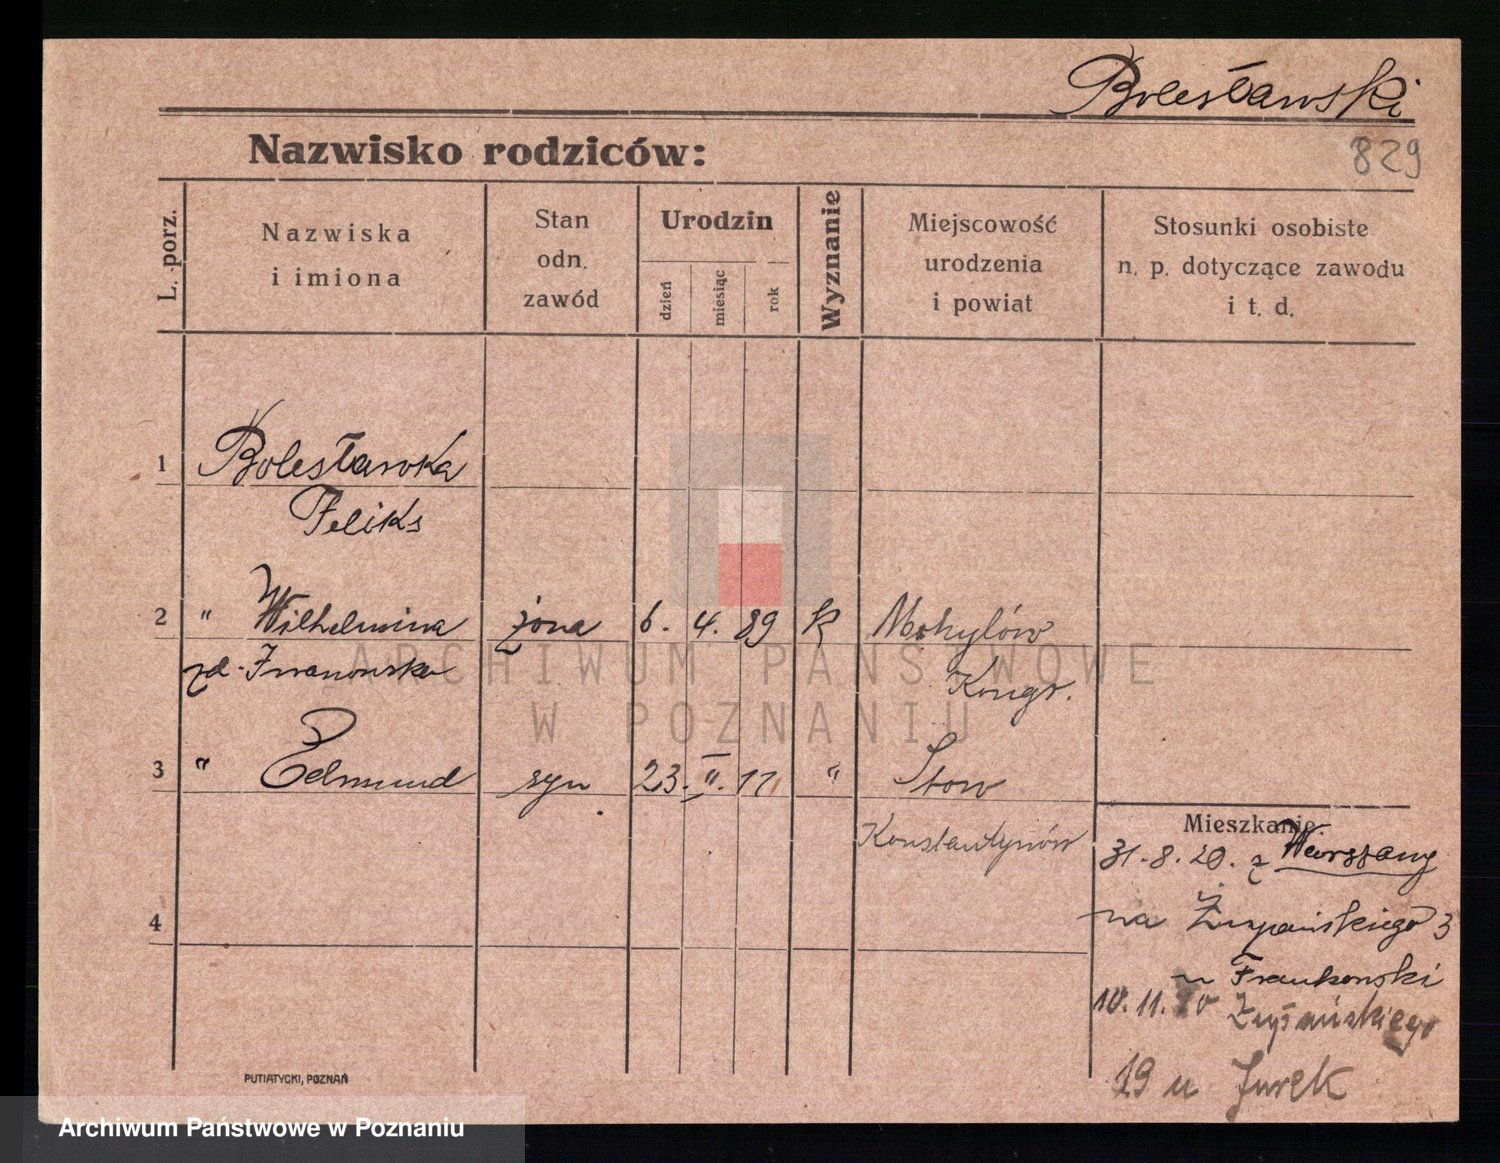 Bolesławski
829
Nazwisko rodziców:
L. porz.
Nazwiska
i imiona
Stan
odn.
zawód
Urodzin
dzień
miesiąc
rok
Wyznanie
Miejscowość
urodzenia
i powiat
Stosunki osobiste
n. p. dotyczące zawodu
i t. d.
1 Bolesławska
Feliks
2 " Wilhelmina żona 6. 4. 89 k Mohylów
zd. Iwanowska Kongr.
3 " Edmund syn 23. II. 11 " Stow
Konstantynów
4
Mieszkanie:
31.8.20. z Warszawy
na Żupańskiego 3
u Frankowski
10.11.20 Żupańskiego
19 u Jurek
PUTIATYCKI, POZNAŃ
ARCHIWUM PAŃSTWOWE
W POZNANIU
Archiwum Państwowe w Poznaniu